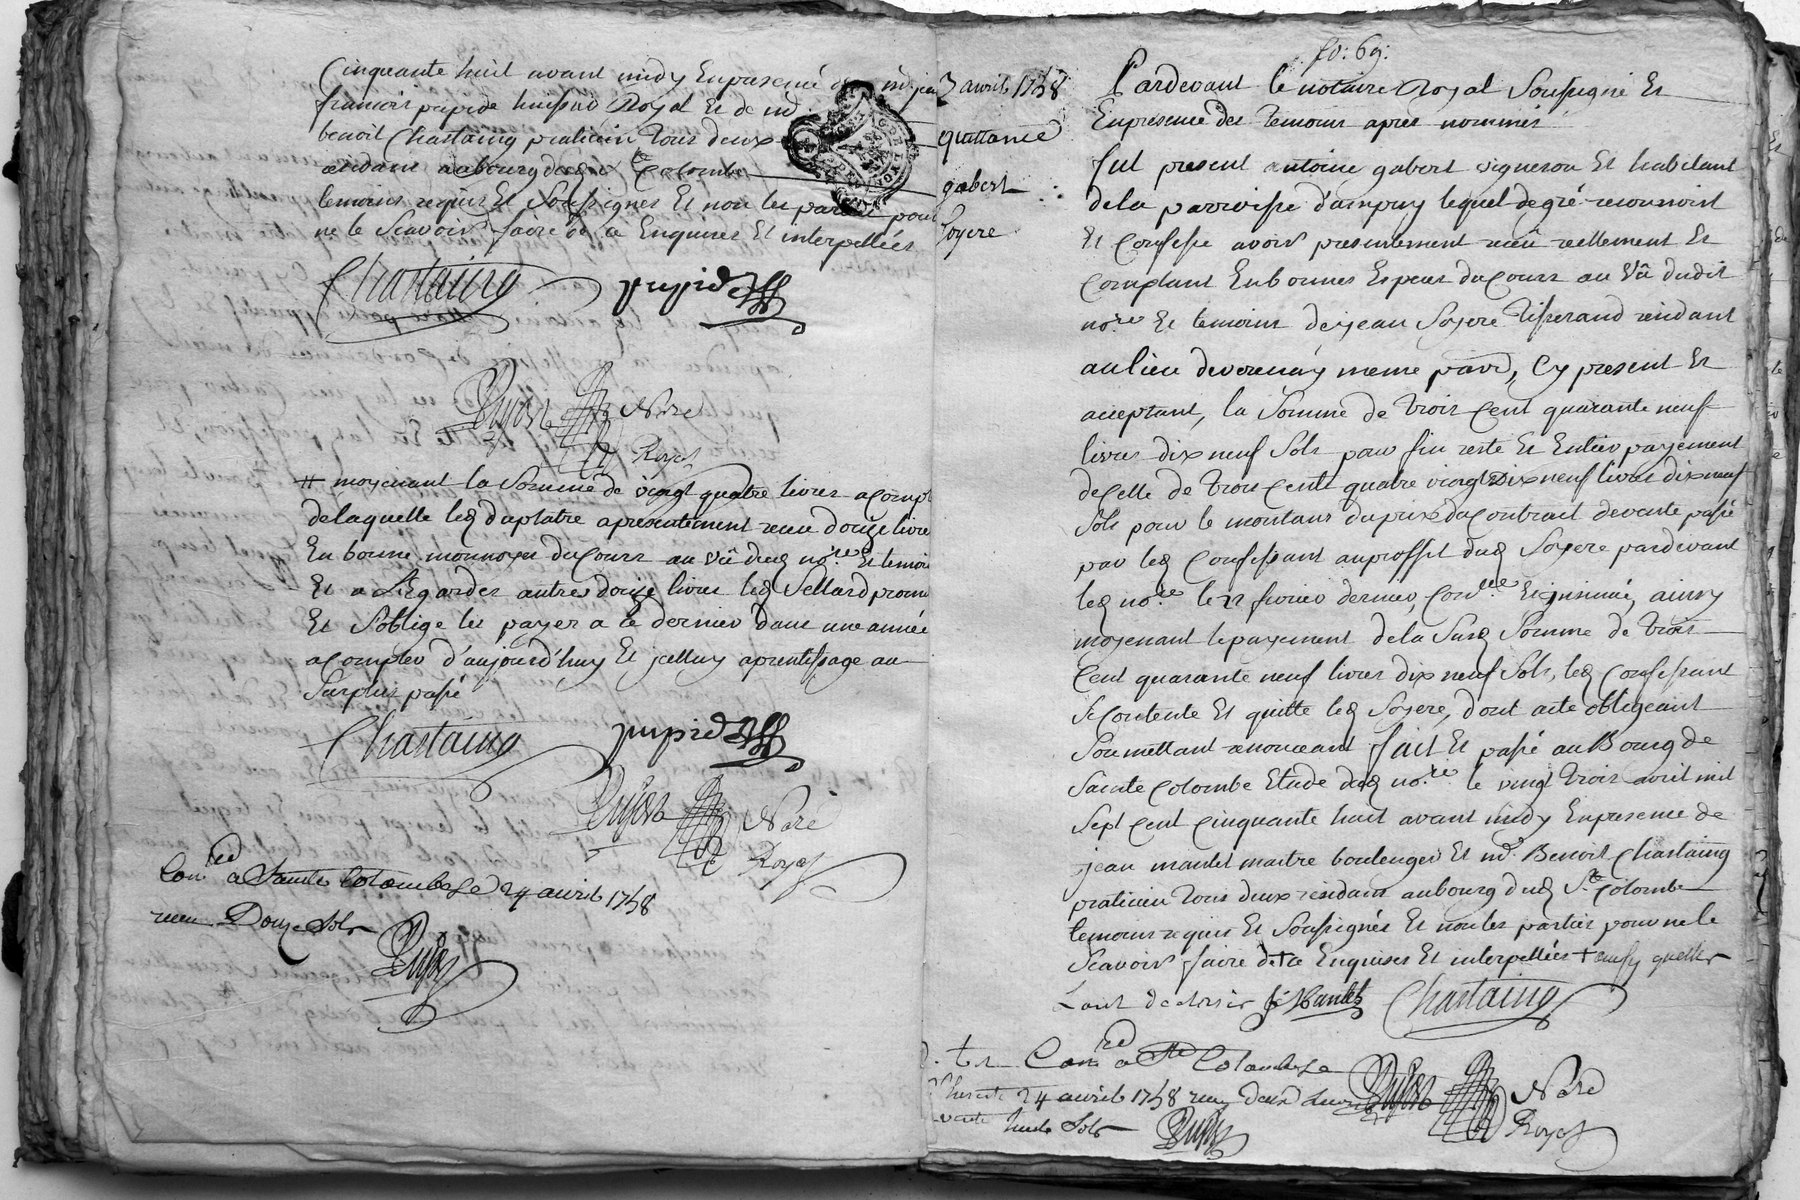 Cinquante huit avant midy En presence de
francois pupide huissié Royal Et de md
benoit Chastaing praticien tous deux
residans au bourg dudt Ste Colombe
temoins requis Et Soussignés Et non les parties pour
ne le Scavoir faire de ce Enquises Et interpellées
Chastaing pupid
Dujast Nore
Royal
# moyenant la Somme de vingt quatre livres acompte
de laquelle led duplatre apresentement receu douze livres
En bonne monnoye du Cours au vû dud nore Et temoins
Et a L'Egard des autres douze livres led Sellard promet
Et S'oblige les payer a ce dernier dans une année
a Compter d'aujourd'huy Et jcelluy aprentissage au
Surplus passé
Chastaing pupid
Dujast Noré
Royal
Conlé a Sainte Colombe Le 24 avril 1758
receu Douze Sols
Dujast
fo: 69:
3 avril 1758
quittance
gabert
Soyere
Pardevant le notaire Royal Soussigné Et
En presence des temoins apres nommés
fut present antoine gabert vigneron Et habitant
de la parroisse d'ampuy lequel de gré reconnoist
Et Confesse avoir presentement receu reellement Et
Comptant En bonnes Especes du Cours au Vû dudit
nore Et temoins de jean Soyere tisserand residant
au lieu de verenay meme parr, Cy present Et
acceptant, la Somme de trois Cent quarante neuf
livres dix neuf Sols pour fin reste Et Entier payement
de Celle de trois Cents quatre vingt dix neuf livres dix neuf
Sols pour le montant du prix du Contrat de vente passé
par led Confessant au proffit dud Soyere pardevant
led nore le 22 fevrier dernier, Conlé Et insinué, ainsy
moyenant le payement de la Susd Somme de trois
Cent quarante neuf livres dix neuf Sols, led Confessant
Se Contente Et quitte led Soyere, dont acte obligeant
Soumettant renonceant fait Et passé au Bourg de
Sainte Colombe Etude dud nore le vingt trois avril mil
Sept Cent Cinquante huit avant midy En presence de
jean mantel maitre boulenger Et md Benoit Chastaing
praticien tous deux residans au bourg dud Ste Colombe
temoins requis Et Soussignés Et non les parties pour ne le
Scavoir faire de ce Enquises Et interpellées + ainsy quelles
Lont declaré J Mantel Chastaing
Conlé a Ste Colombe Le
24 avril 1758 receu deux livres Dujast Nore
huit Sols Dujast Royal